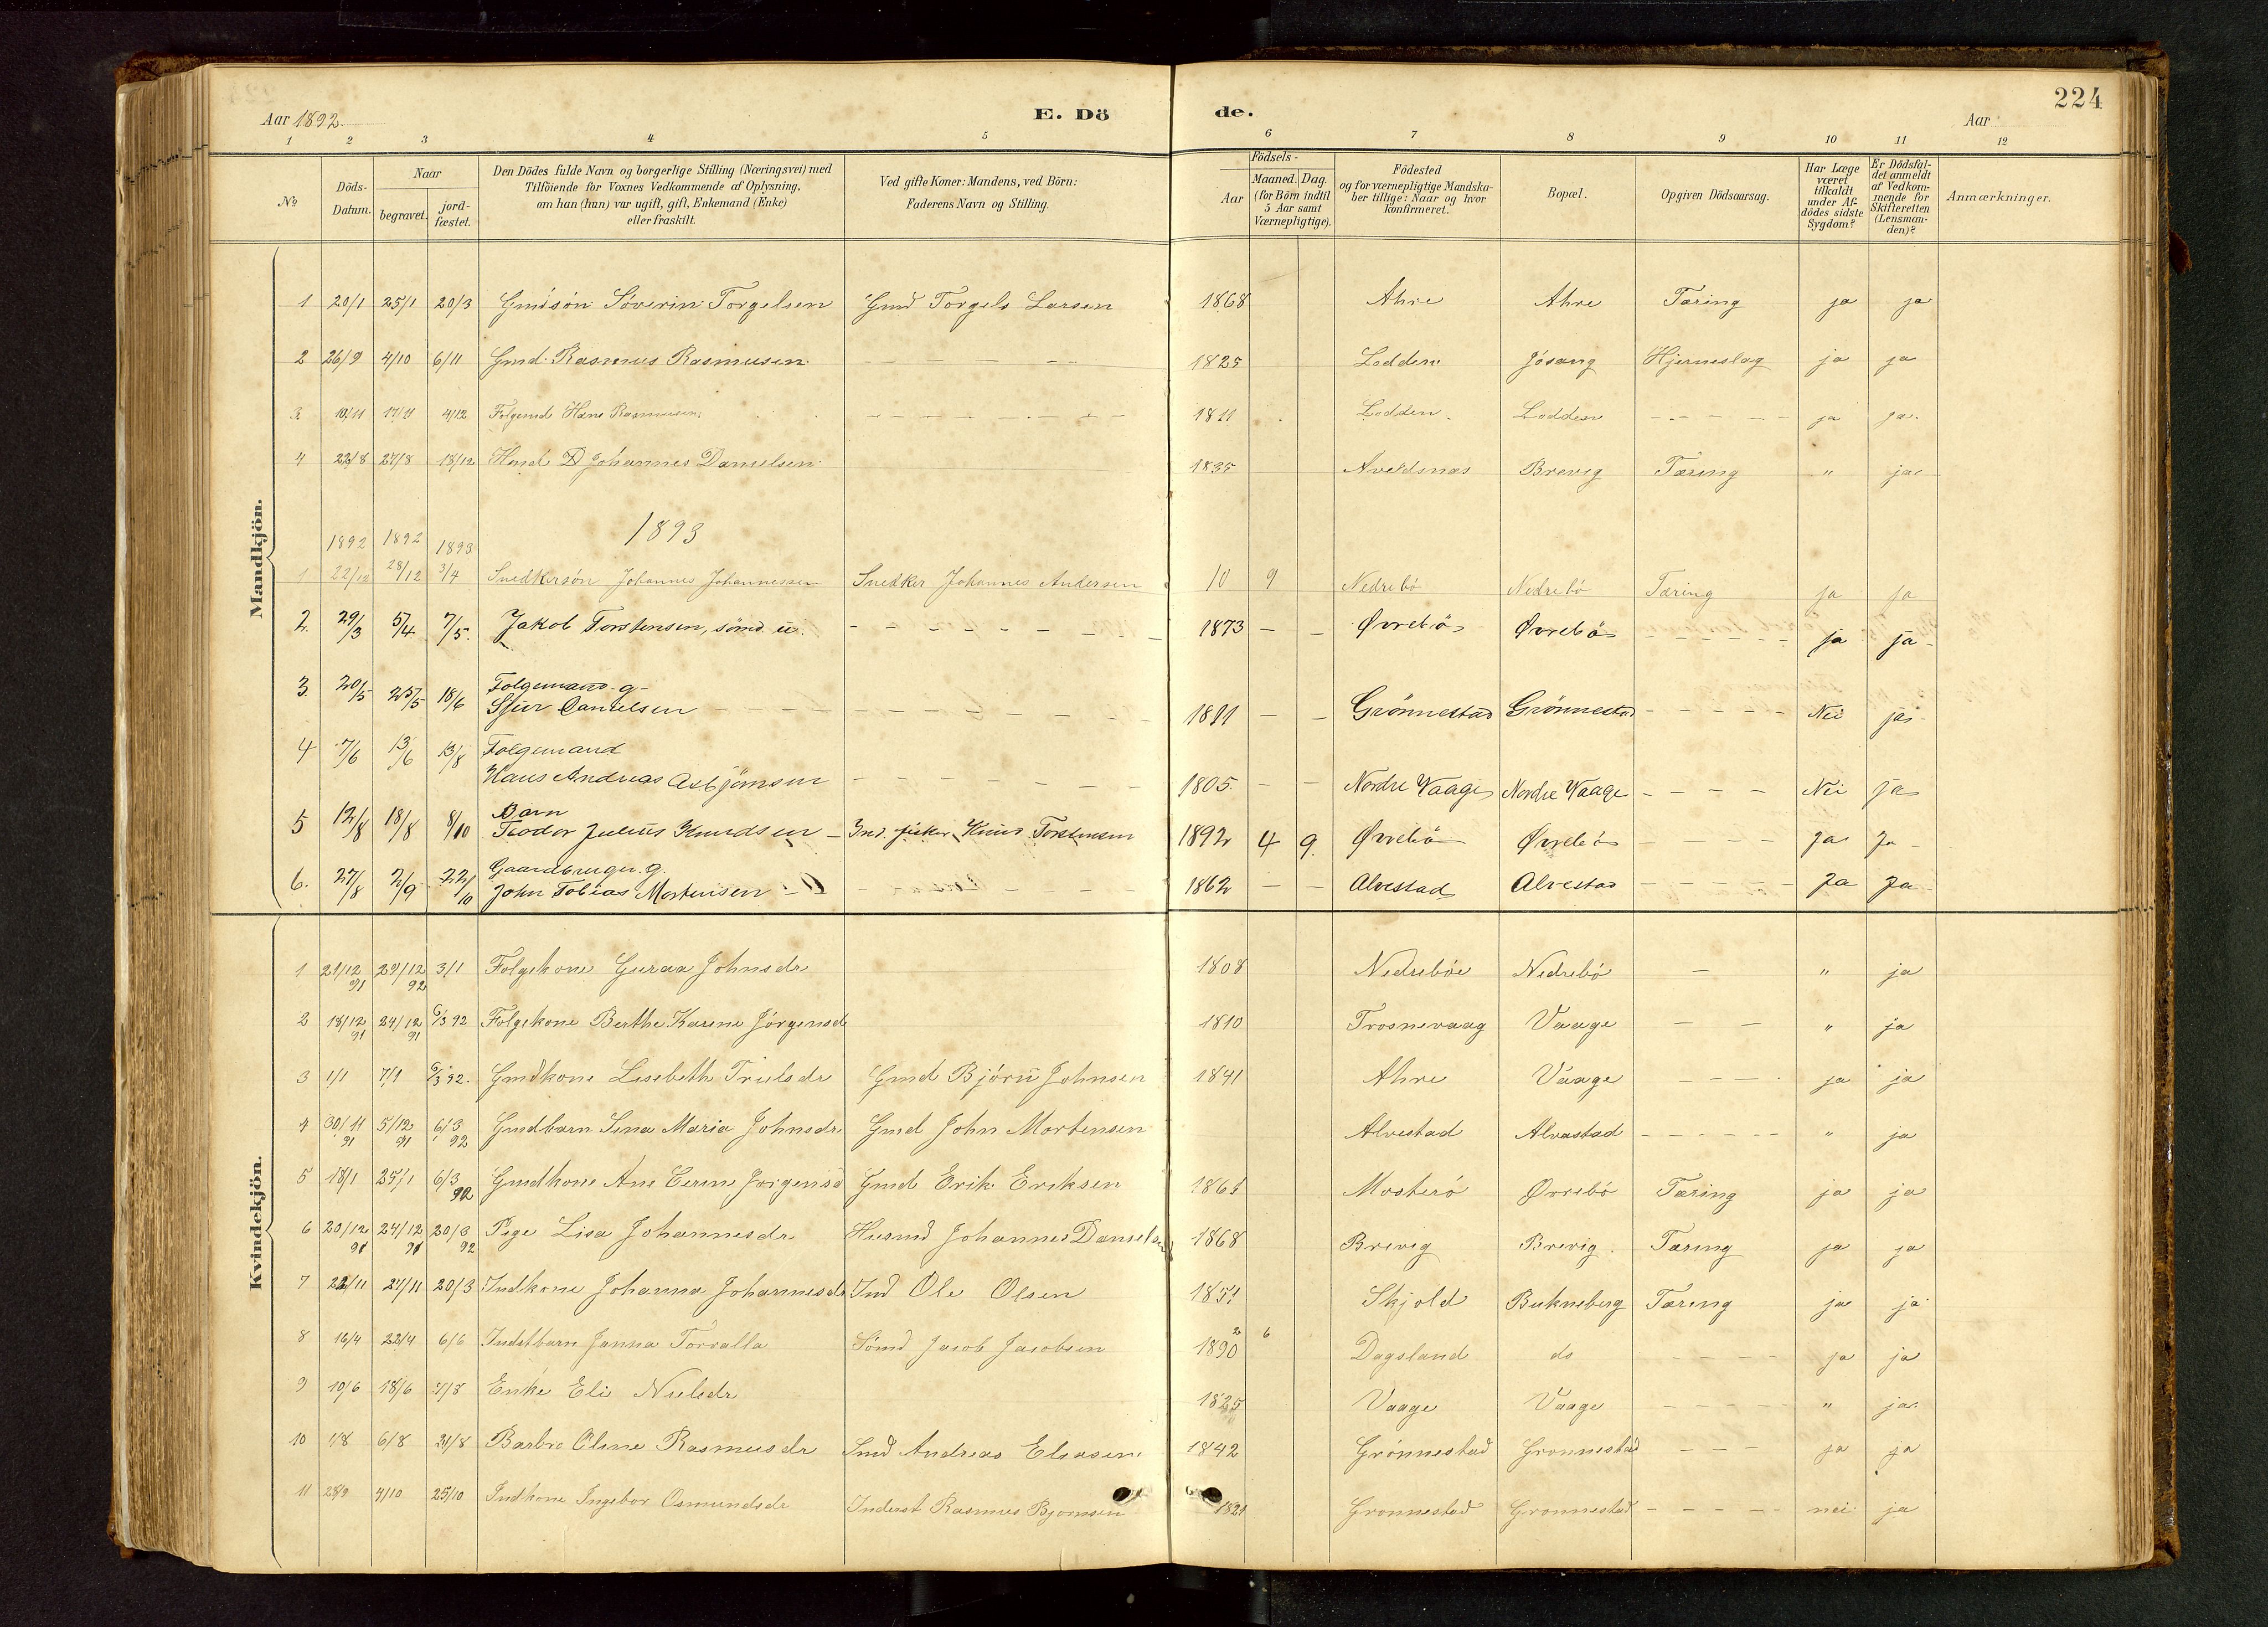 224
Aar 1892.
E. Dö
de.
Aar
1 2 3 4 5 6 7 8 9 10 11 12
No
Döds-Datum.
Naar
begravet.
jord-fæstet.
Den Dödes fulde Navn og borgerlige Stilling (Næringsvei) med
Tilföiende for Voxnes Vedkommende af Oplysning,
om han (hun) var ugift, gift, Enkemand (Enke)
eller fraskilt.
Ved gifte Koner: Mandens, ved Börn:
Faderens Navn og Stilling.
Födsels-
Aar
Maaned. Dag.
(for Börn indtil
5 Aar samt
Værnepligtige).
Födested
og for værnepligtige Mandska-
ber tillige: Naar og hvor
konfirmeret.
Bopæl.
Opgiven Dödsaarsag.
Har Læge
været
tilkaldt
under Af-
dödes sidste
Sygdom?
Er Dödsfal-
det anmeldt
af Vedkom-
mende for
Skifteretten
(Lensman-
den)?
Anmærkninger.
Mandkjön.
1 20/1 25/1 20/3 Gmdsön Söverin Torgelsen Gmd Torgels Larsen 1868 Ahre Ahre Tæring ja ja
2 26/9 4/10 6/11 Gmd. Rasmus Rasmusen — — — 1825 Lodden Jösang Hjerneslag ja ja
3 10/11 17/11 4/12 Folgemd Hans Rasmusen - - - - 1811 Lodden Lodden - - - - ja ja
4 22/8 27/8 18/12 Husmd Johannes Danielsen 1835 Avaldsnæs Brevig Tæring " ja
1893
1892 1892 1893
1 22/12 28/12 3/4 Snedkersön Johannes Johannessen Snedker Johannes Andersen 10 9 Nedrebö Nedrebö Tæring ja ja
2. 29/3 5/4 7/5. Jakob Torstensen, sömd. u. - - - - 1873 — — Øvrebö Øvrebö - - - - ja ja
3. 20/5 25/5 18/6 Folgemand g.
Sjur Danielsen - - - - 1811 — — Grönnestad Grönnestad - - - - Nei ja
4 7/6 13/6 13/8 Folgemand
Hans Andreas Asbjörnsen - - - - 1805. — — Nordre Vaage Nordre Vaage - - - - Nei ja
5 12/8 18/8 8/10 Barn
Teodor Julius Knudsen - Ind. fisker Knud Torstensen 1892 4 9. Øvrebö Øvrebö - - - - Ja Ja
6. 27/8 2/9 22/10 Gaardbruger g.
John Tobias Mortensen - - - - 1862 — — Alvestad Alvestad - - - - Ja Ja
Kvindekjön.
1 21/12 91 29/12 92 3/1 Folgekone Guraa Johnsdr 1808 Nedreböe Nedrebö — " ja
2 18/12 91 24/12 91 6/3 92 Folgekone Berthe Karine Jörgensd 1810 Trosnevaag Vaage — — " ja
3 1/1 7/1 6/3 92. Gmdkone Lisebeth Trulsdr Gmd Björn Johnsen 1841 Ahre Vaage - - - ja ja
4 30/11 91 5/12 91 6/3 92 Gmdbarn Sina Maria Johnsdr Gmd John Mortensen Alvestad Alvastad - - - - " ja
5 18/1 25/1 6/3 92 Gmdkone Ane Jorgensd Gmd Erik Eriksen Mosterö Øvrebö Tæring ja ja
6 20/12 91 24/12 91 20/3 92 Pige Lisa Johannesdr Husmd Johannes Danielsen 1868 Brevig Brevig. Tæring ja ja
7 22/11 27/11 20/3 Indkone Johanna Johannesdr Ind Ole Olsen 1851 Skjold Bukneberg Tæring ja ja
8 16/4 22/4 6/6 Indstbarn Janna Torvalla Sömd Jacob Jacobsen 1890 2 6 Dagsland do - - - - ja ja
9 10/6 18/6 7/8 Enke Eli Nielsdr 1825 Vaage Vaage - - - - " ja
10 1/8 6/8 21/8 Barbro Oline Rasmusdr Smd Andreas Eliasen 1842 Grönnestad Gronnestad - - - ja ja
11 28/9 4/10 25/10 Indkone Ingebor Osmundsdr Inderst Rasmus Bjornsen 1821 Gronnestad Gronnestad - - - - nei ja